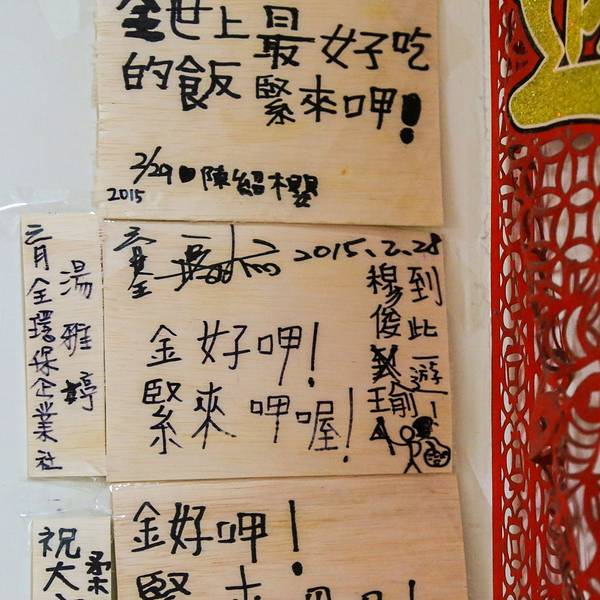 全世上最好吃
的飯緊來呷!
2/29
陳紹櫻
2015
2015.2.28
金好呷!
緊來呷喔!
到此一遊!
楊俊
瑜
湯雅婷
三月全環保企業社
金好呷!
緊來
祝大
柔